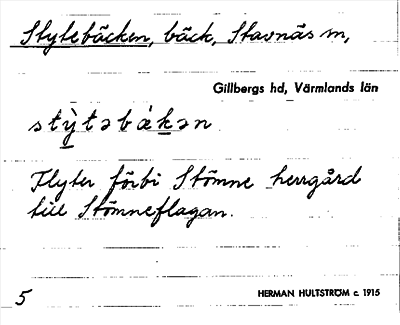 Stytebäcken, bäck, Stavnäs sn,
Gillbergs hd, Värmlands län
stỳtəbákən
Flyter förbi Stömne herrgård
till Stömneflagan.
5
HERMAN HULTSTRÖM c. 1915